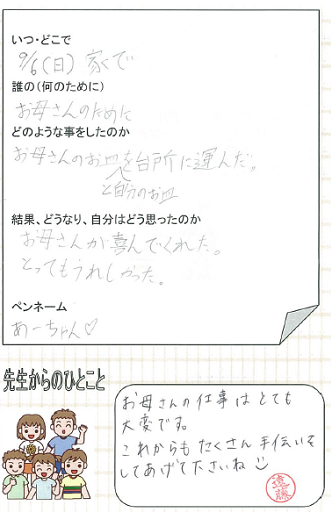 いつ・どこで
9/6(日) 家で
誰の(何のために)
お母さんのために
どのような事をしたのか
お母さんのお皿を台所に運んだ。
と自分のお皿
結果、どうなり、自分はどう思ったのか
お母さんが喜んでくれた。
とってもうれしかった。
ペンネーム
あーちゃん♡
先生からのひとこと
お母さんの仕事はとても
大変です。
これからもたくさん手伝いを
してあげて下さいね
遠藤